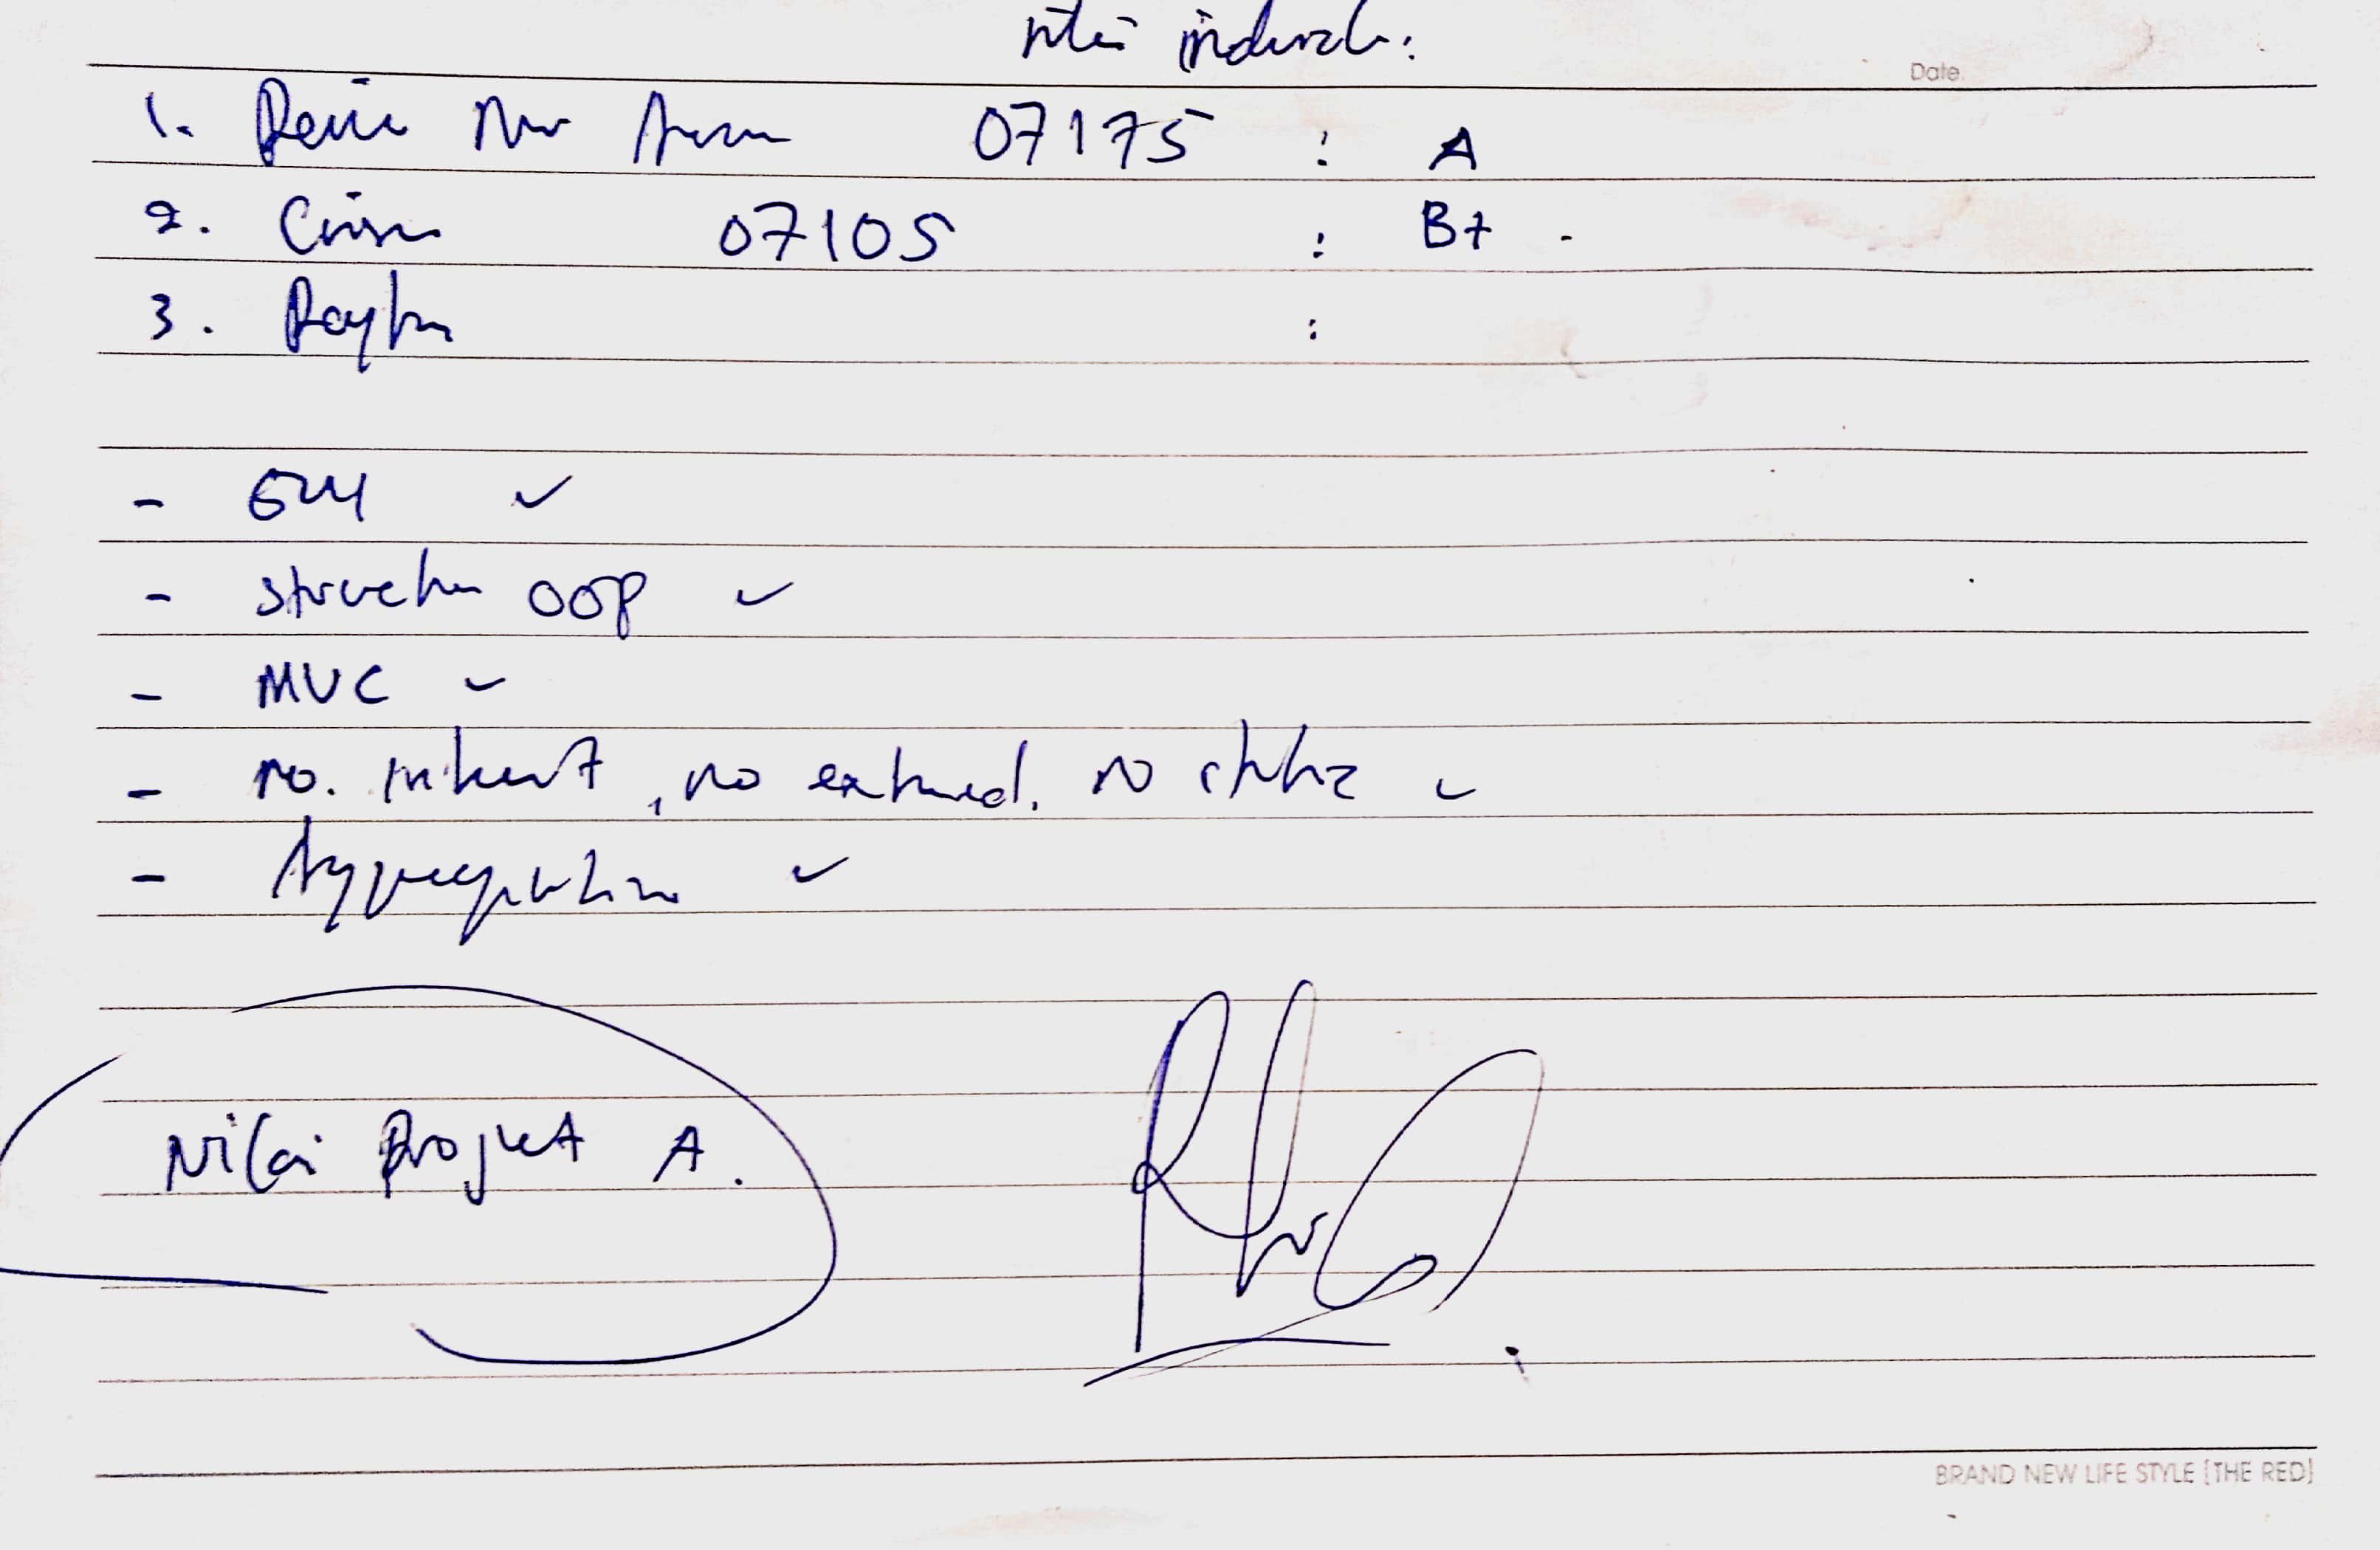 nilai individu :
Date
1. Nur 07175 : A
2. 07105 : B+ -
3. Rayhan :
- GUI ✓
- struktur OOP ✓
- MVC ✓
- no. inherit, no extend. no static ✓
- Aggregation ✓
Nilai Projek A.
BRAND NEW LIFE STYLE [THE RED]